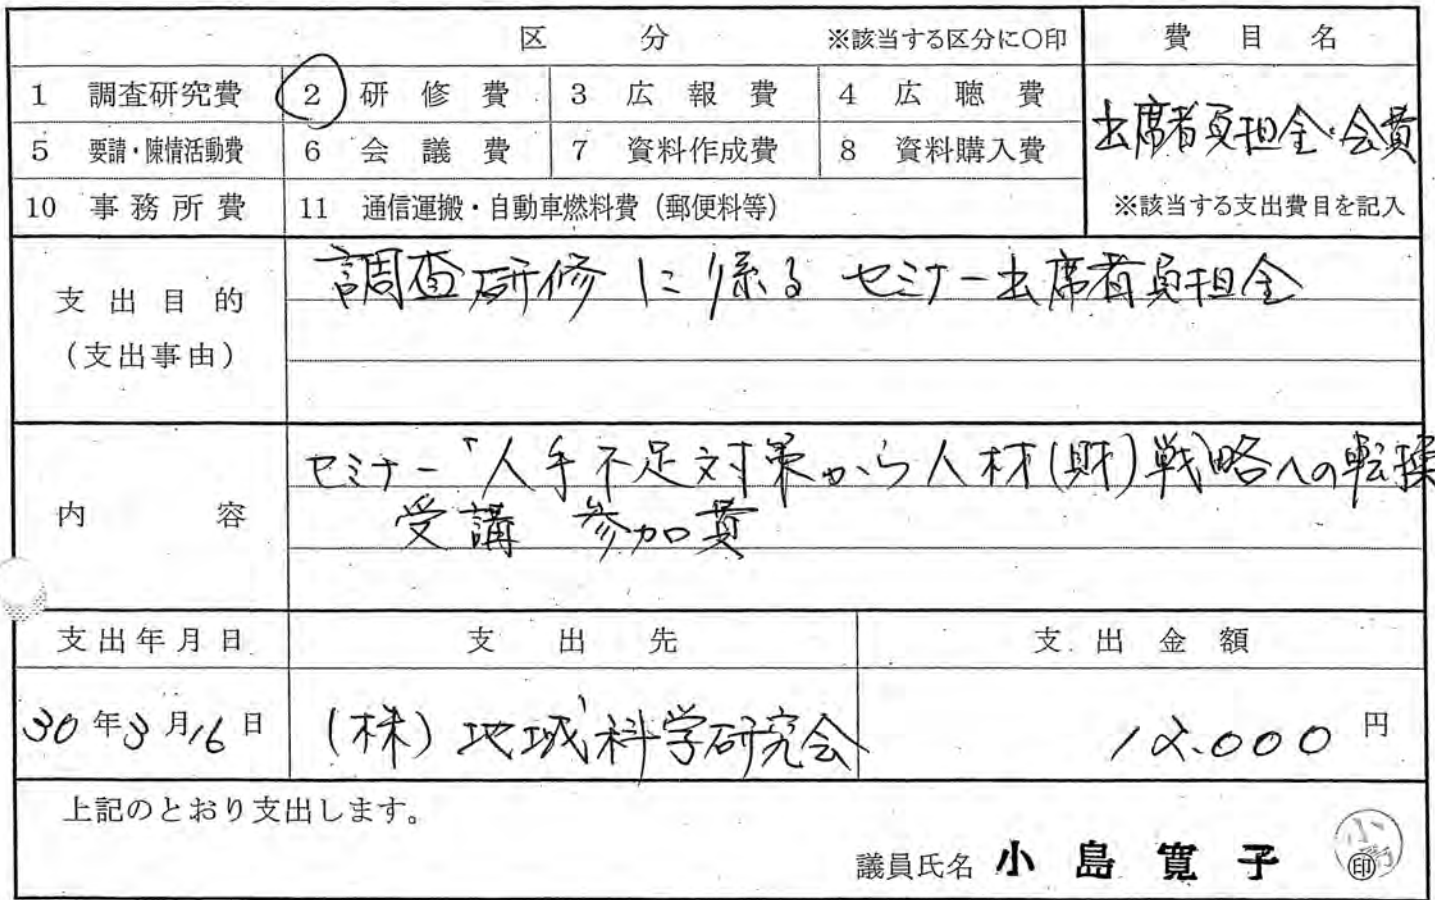 区 分 ※該当する区分に○印 費 目 名
1 調査研究費 2 研 修 費 3 広 報 費 4 広 聴 費
出席者負担金・会費
5 要請・陳情活動費 6 会 議 費 7 資料作成費 8 資料購入費
10 事務所費 11 通信運搬・自動車燃料費(郵便料等) ※該当する支出費目を記入
支出目的
(支出事由)
調査研修に係るセミナー出席者負担金
内 容
セミナー「人手不足対策から人材(財)戦略への転換
受講 参加費
支出年月日 支 出 先 支 出 金 額
30年3月16日 (株)地域科学研究会 12.000円
上記のとおり支出します。
議員氏名 小島寛子 印